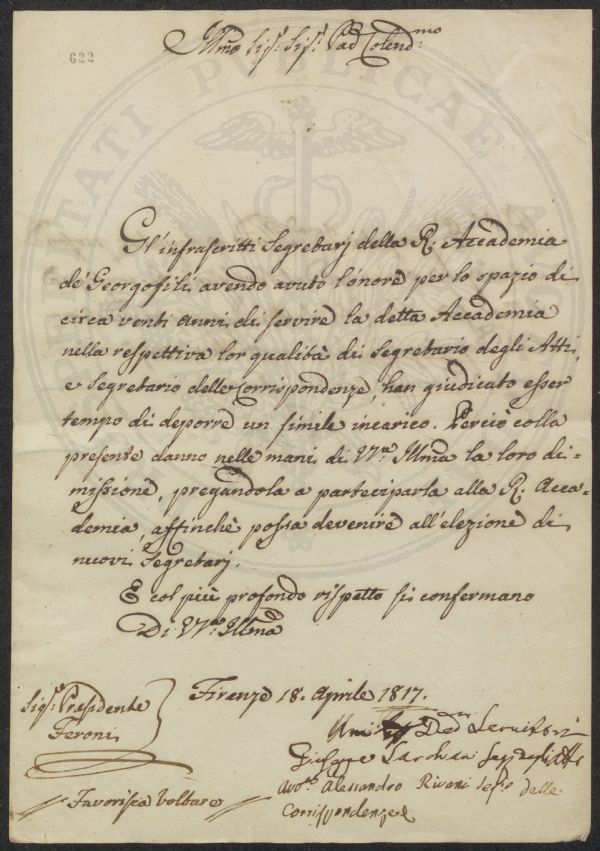 622
Illmo Sigr Sigr Pad Colendmo
Gl'infrascritti Segretarj della R. Accademia
de' Georgofili avendo avuto l'onore per lo spazio di
circa venti anni di servire la detta Accademia
nella respettiva lor qualità di Segretario degli Atti,
e Segretario delle Corrispondenze, han giudicato esser
tempo di deporre un simile incarico. Perciò colla
presente danno nelle mani di V.ra Illma la loro di=
missione, pregandola a parteciparla alla R. Acca=
demia, affinchè possa devenire all'elezione di
nuovi Segretarj.
E col più profondo rispetto si confermano
Di V.ra Illma
Firenze 18. Aprile 1817.
Sigr Presidente
Feroni
Favorisca voltare
Umi Devmi Servitori
Giuseppe Sarchiani Segr degli Atti
Avvto Alessandro Rivani Segro delle
Corrispondenze
PUBLICAE